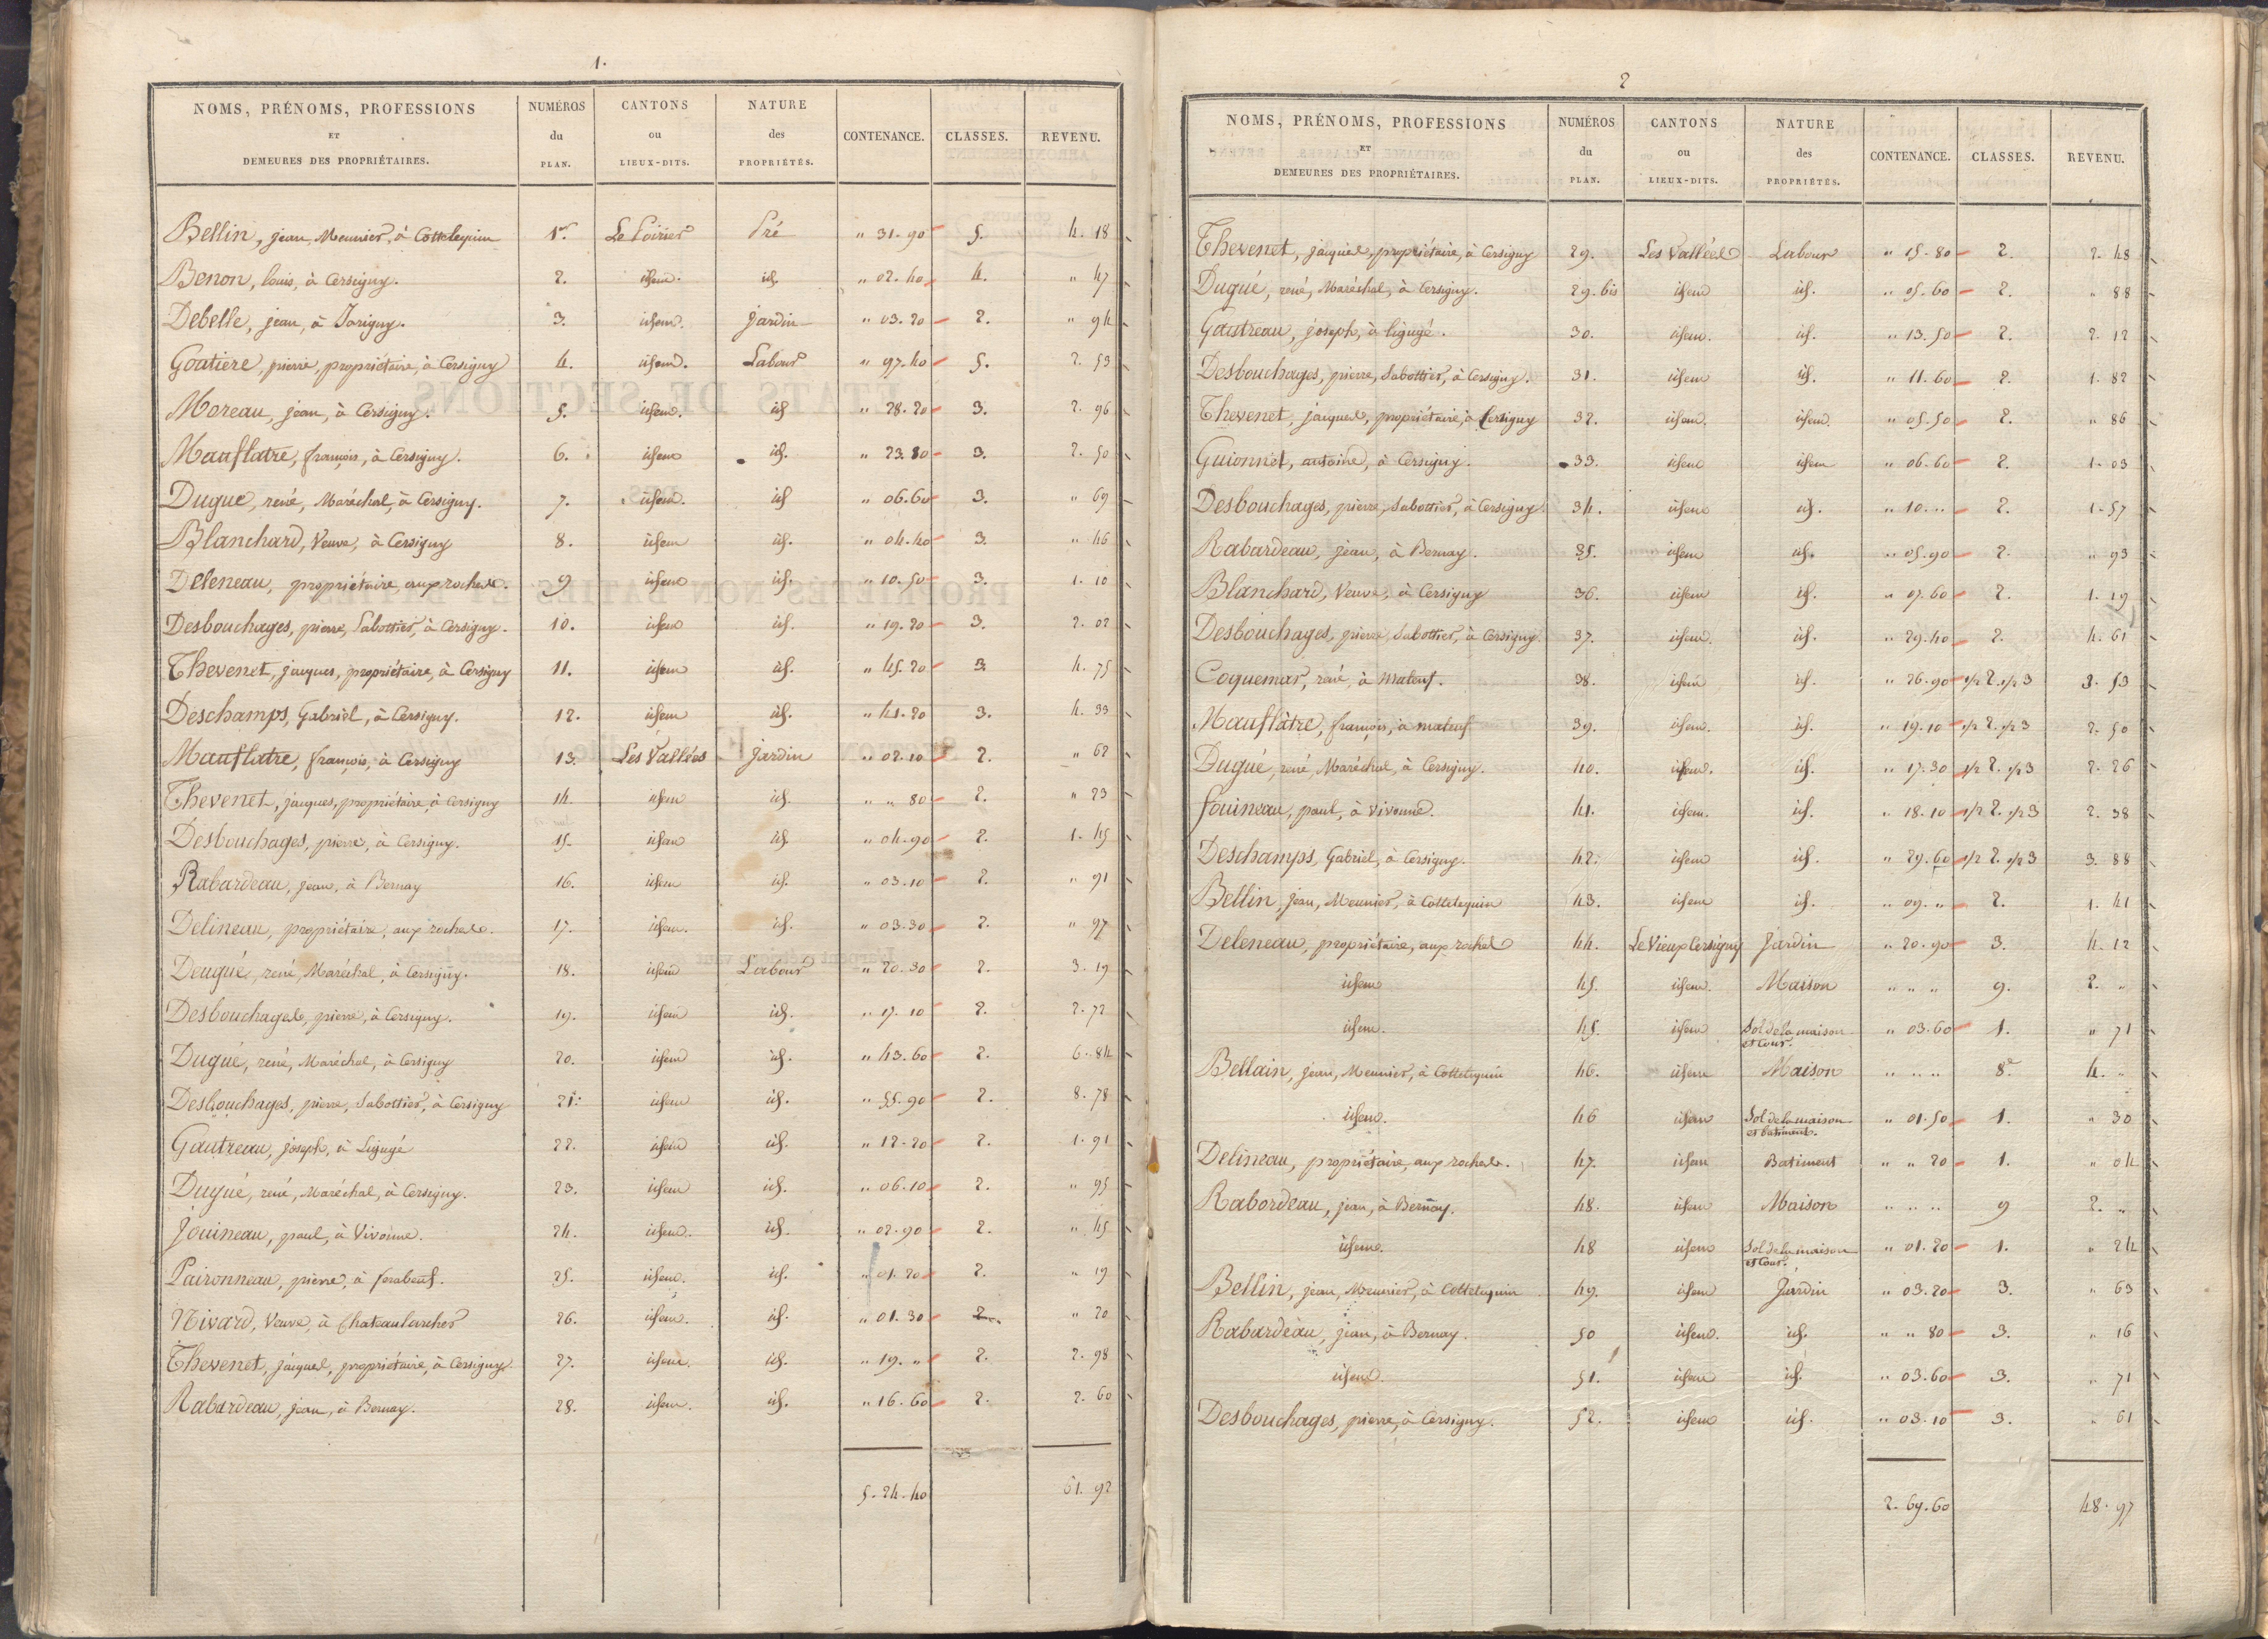 1.
NOMS, PRÉNOMS, PROFESSIONS ET DEMEURES DES PROPRIÉTAIRES. NUMÉROS du PLAN. CANTONS ou LIEUX-DITS. NATURE des PROPRIÉTÉS. CONTENANCE. CLASSES. REVENU.
Bellin, jean, Meunier, à Cottelequin 1er. Le Poirier Pré " 31. 90 5. 4. 18
Benon, louis, à Cersigny. 2. idem. id. " 02. 40 4. " 47
Debelle, jean, à Jorigny. 3. idem. Jardin " 03. 20 2. " 94
Goatiere, pierre, propriétaire, à Cersigny 4. idem. Labour " 97. 40 5. 2. 53
Moreau, jean, à Cersigny. 5. idem. id " 28. 20 3. 2. 96
Mauflatre, françois, à Cersigny. 6. idem id. " 23. 80 3. 2. 50
Dugue, rené, Maréchal, à Cersigny. 7. idem. id " 06. 60 3. " 69
Blanchard, Veuve, à Cersigny 8. idem id. " 04. 40 3. " 46
Deleneau, propriétaire, aux roches. 9 idem id. " 10. 50 3. 1. 10
Desbouchages, pierre, Sabottier, à Cersigny. 10. idem id. " 19. 20 3. 2. 02
Thevenet, jacques, propriétaire, à Cersigny 11. idem id. " 45. 20 3 4. 75
Deschamps, Gabriel, à Cersigny. 12. idem id. " 41. 20 3. 4. 33
Mauflatre, françois, à Cersigny 13. Les Vallées Jardin " 02. 10 2. " 62
Thevenet, jacques, propriétaire, à Cersigny 14. idem id. " " 80 2. " 23
Desbouchages, pierre, à Cersigny. 15. idem id. " 04. 90 2. 1. 45
Rabardeau, jean, à Bernay 16. idem id. " 03. 10 2. " 91
Delineau, propriétaire, aux roches. 17. idem. id. " 03. 30 2. " 97
Deugué, rené, Maréchal, à Cersigny. 18. idem Labour " 20. 30 2. 3. 19
Desbouchages, pierre, à Cersigny. 19. idem id. " 17. 10 2. 2. 72
Dugué, rené, Maréchal, à Cersigny 20. idem id. " 43. 60 2. 6. 84
Desbouchages, pierre, Sabottier, à Cersigny 21. idem id. " 55. 90 2. 8. 78
Gautreau, joseph, à Ligugé 22. idem id. " 12. 20 2. 1. 91
Dugué, rené, Maréchal, à Cersigny. 23. idem id. " 06. 10 2. " 95
Jouineau, paul, à Vivonne. 24. idem. id. " 02. 90 2. " 45
Paironneau, pierre, à 25. idem. id. " 01. 20 2. " 19
Nivard, Veuve, à Chateaularcher 26. idem. id. " 01. 30 2. " 20
Thevenet, jacques, propriétaire, à Cersigny. 27. idem. id. " 19. " 2. 2. 98
Rabardeau, jean, à Bernay. 28. idem. id. " 16. 60 2. 2. 60
5. 24. 40 61. 92
2
NOMS, PRÉNOMS, PROFESSIONS ET DEMEURES DES PROPRIÉTAIRES. NUMÉROS du PLAN. CANTONS ou LIEUX-DITS. NATURE des PROPRIÉTÉS. CONTENANCE. CLASSES. REVENU.
Thevenet, jacques, propriétaire, à Cersigny 29. Les Vallées Labour " 15. 80 2. 2. 48
Dugué, rené, Maréchal, à Cersigny. 29. bis idem id. " 05. 60 2. " 88
Gautreau, joseph, à ligugé. 30. idem. id. " 13. 50 2. 2. 12
Desbouchages, pierre, Sabottier, à Cersigny. 31. idem id. " 11. 60 2. 1. 82
Thevenet, jacques, propriétaire, à Cersigny 32. idem. idem. " 05. 50 2. " 86
Guionnet, antoine, à Cersigny. 33. idem idem " 06. 60 2. 1. 03
Desbouchages, pierre, Sabottier, à Cersigny. 34. idem id. " 10. " 2. 1. 57
Rabardeau, jean, à Bernay. 35. idem id. " 05. 90 2. " 93
Blanchard, Veuve, à Cersigny 36. idem id. " 07. 60 2. 1. 19
Desbouchages, pierre, Sabottier, à Cersigny. 37. idem. id. " 29. 40 2. 4. 61
Coquemar, rené, à Mateuf. 38. idem id. " 26. 90 1/2 2. 1/2 3 3. 53
Mauflâtre, françois, à mateuf 39. idem. id. " 19. 10 1/2 2. 1/2 3 2. 50
Dugué, rené, Maréchal, à Cersigny. 40. idem. id. " 17. 30 1/2 2. 1/2 3 2. 26
Jouineau, paul, à Vivonne. 41. idem. id. " 18. 10 1/2 2. 1/2 3 2. 38
Deschamps, Gabriel, à Cersigny. 42. idem id. " 29. 60 1/2 2. 1/2 3 3. 88
Bellin, jean, Meunier, à Cottelequin 43. idem id. " 09. " 2. 1. 41
Deleneau, propriétaire, aux roches 44. Le Vieux Cersigny Jardin " 20. 90 3. 4. 12
idem 45. idem. Maison " " " 9. 2. "
idem. 45. idem Sol de la maison et Cour. " 03. 60 1. " 71
Bellain, jean, Meunier, à Cottelequin 46. idem Maison " " " 8e 4. "
idem. 46 idem Sol de la maison et batiment. " 01. 50 1. " 30
Delineau, propriétaire, aux roches. 47. idem Batiment " " 20 1. " 04
Rabordeau, jean, à Bernay. 48. idem Maison " " " 9 2. "
idem. 48 idem Sol de la maison et Cour. " 01. 20 1. " 24
Bellin, jean, Meunier, à Cottelequin 49. idem Jardin " 03. 20 3. " 63
Rabardeau, jean, à Bernay. 50 idem. id. " " 80 3. " 16
idem. 51. idem id. " 03. 60 3. " 71
Desbouchages, pierre, à Cersigny. 52. idem id. " 03. 10 3. " 61
2. 69. 60 48. 97